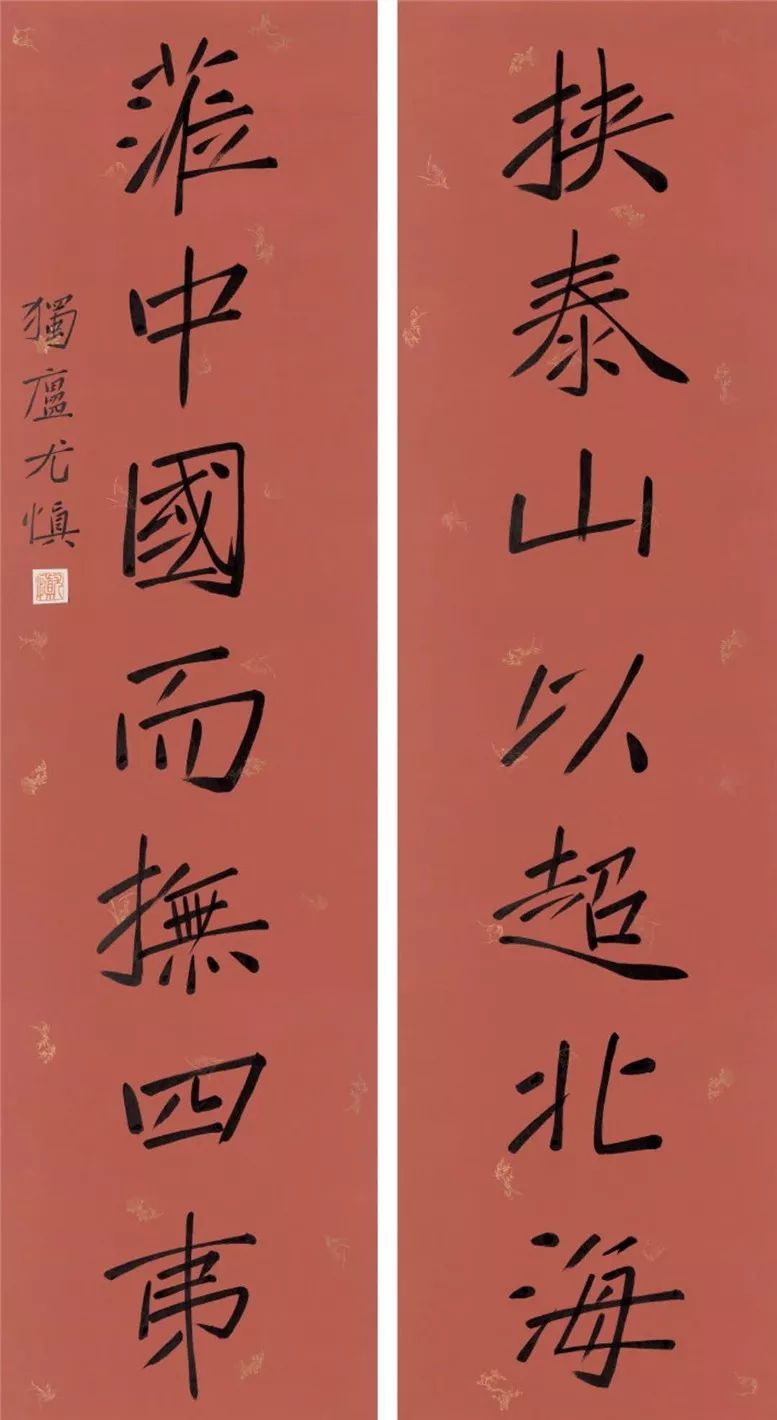 挟泰山以超北海
蒞中國而撫四夷
獨廬尤愼